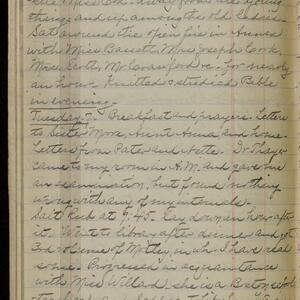 Miss Cook. away from the young
things and up among the old ladies.
Sat around the open fire in Annex
with Miss Bassett, Mrs Joseph Cook
Mrs. Scott, Mr. Crawford &c. for nearly
an hour. Knitted & studied Bible
in evening.
Tuesday 7. Breakfast and prayers. Letters
to Sister Mom, Aunt Anna and home.
Letters from Pater and Nette. Dr. Thayer
came to my room in A.M. and gave me
an examination, but found nothing
wrong with any of my internals.
Salt Rub at 9.45. Lay down an hour after
it. Went to library after dinner and got
3rd volume of Motley, in wh. I have read
some. Progressed in acquaintance
with Miss Willard, she is a Boston